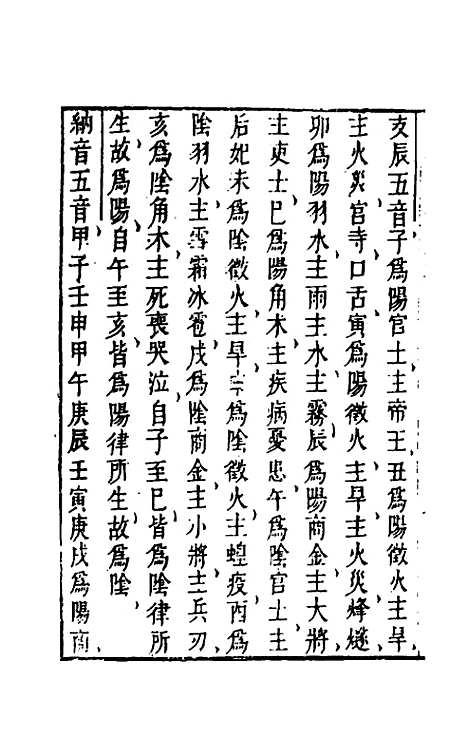 支辰五音子爲陽宮土主帝王丑爲陽徵火主旱
主火災宮寺口舌寅爲陽徵火主旱主火災烽燧
卯爲陽羽水主雨主水主霧辰爲陽商金主大將
主吏士巳爲陽角木主疾病憂患午爲陰宮土主
后妃未爲陰徵火主旱申爲陰徵火主蝗疫酉爲
陰羽水主雪霜冰雹戌爲陰商金主小將士兵刃
亥爲陰角木主死喪哭泣自子至巳皆爲陰律所
生故爲陽自午至亥皆爲陽律所生故爲陰
納音五音甲子壬申甲午庚辰壬寅庚戌爲陽商